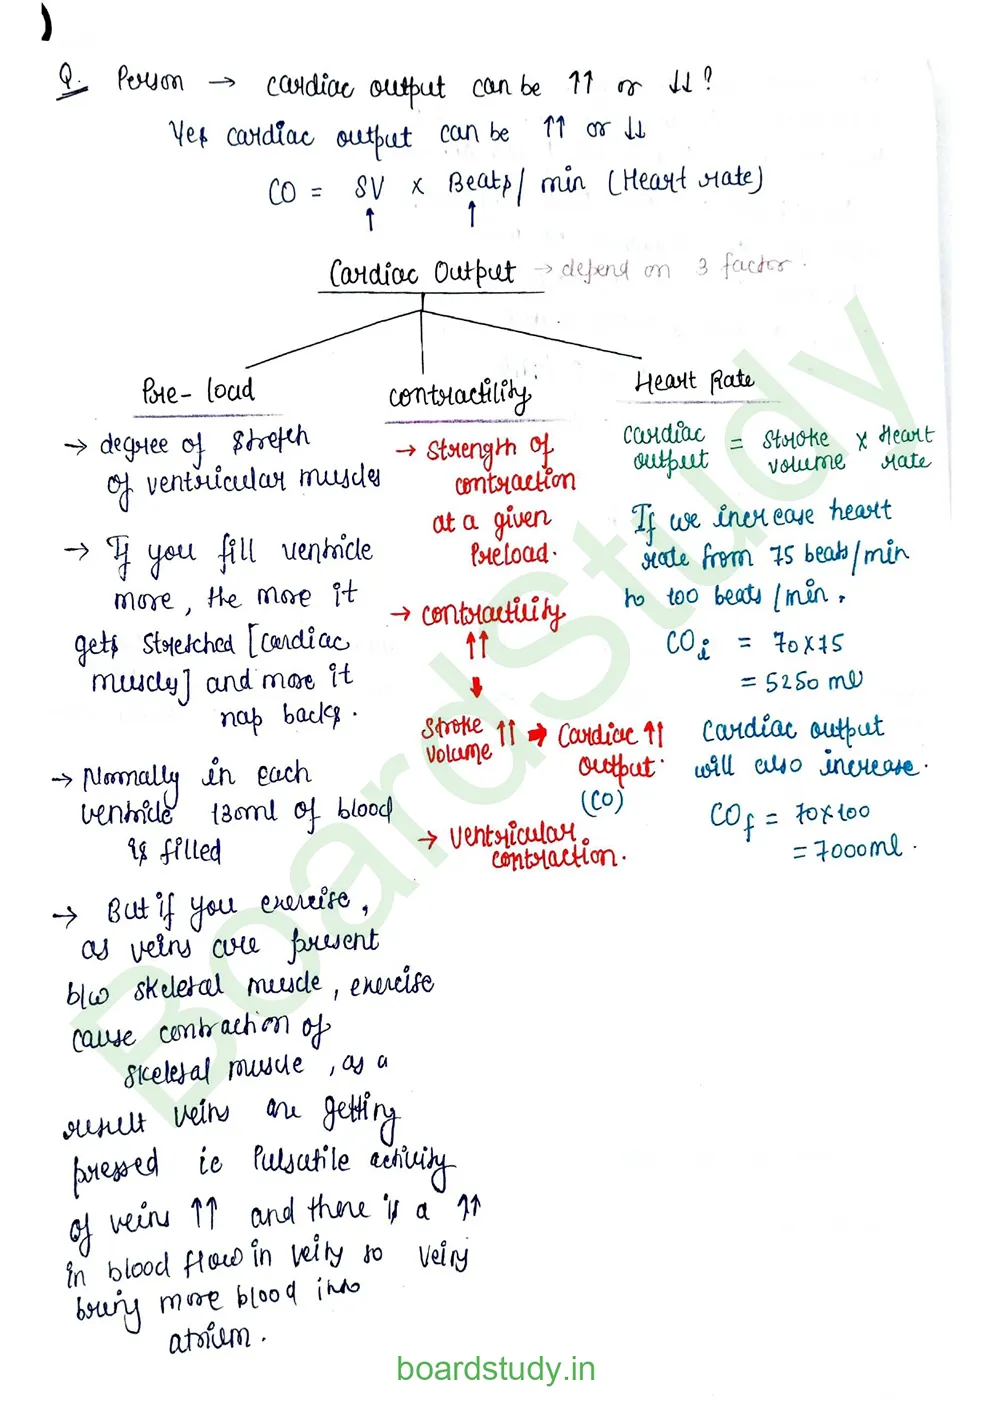 Q. Person → cardiac output can be ↑↑ or ↓↓?
Yes cardiac output can be ↑↑ or ↓↓
CO = SV x Beats/min (Heart rate)
↑ ↑
Cardiac Output → depend on 3 factor.
Pre-load
→ degree of stretch
of ventricular muscles
→ If you fill ventricle
more, the more it
gets stretched [cardiac
muscles] and more it
nap backs.
→ Normally in each
ventricle 130ml of blood
is filled
→ But if you exercise,
as veins are present
b/w skeletal muscle, exercise
cause contraction of
skeletal muscle, as a
result veins are getting
pressed ie Pulsatile activity
of veins ↑↑ and there is a ↑↑
in blood flow in veins so veins
bring more blood into
atrium.
contractility
→ strength of
contraction
at a given
Preload.
→ contractility
↑↑
↓
Stroke volume ↑↑ → Cardiac ↑↑
output.
(CO)
→ ventricular
contraction.
Heart Rate
Cardiac output = stroke volume x Heart rate
If we increase heart
rate from 75 beats/min
to 100 beats/min.
COi = 70x75
= 5250 ml
Cardiac output
will also increase.
COf = 70x100
= 7000ml.
BoardStudy
boardstudy.in